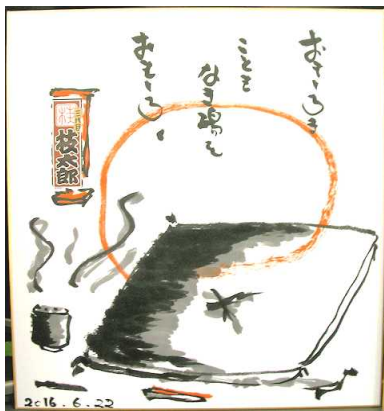 おもしろき
ことも
なき場を
おもしろく
桂
枝太郎
2016.6.22